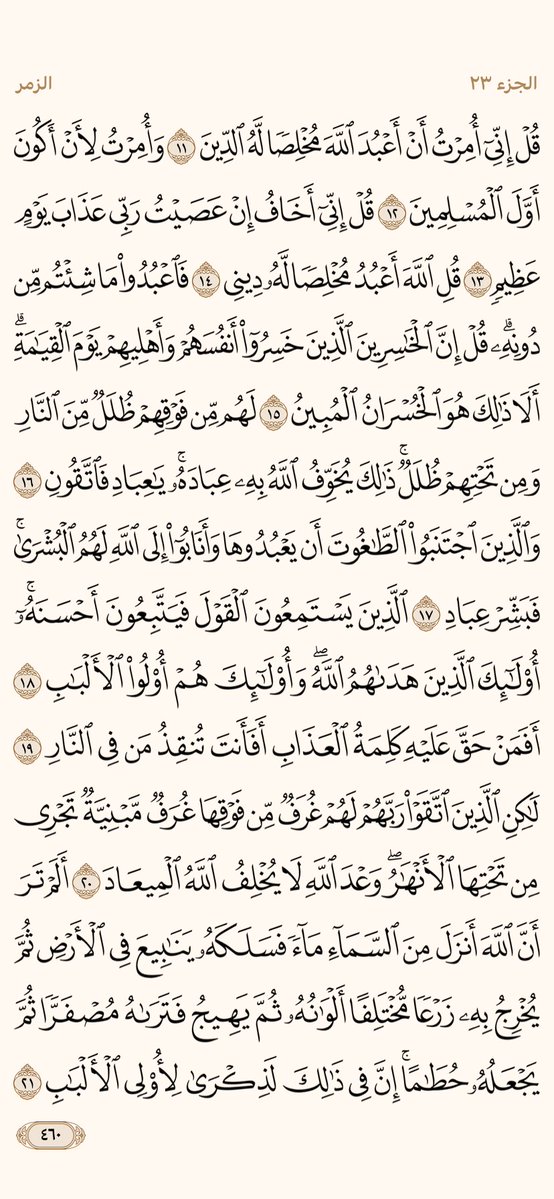 الجزء ٢٣
الزمر
قُلْ إِنِّىٓ أُمِرْتُ أَنْ أَعْبُدَ ٱللَّهَ مُخْلِصًا لَّهُ ٱلدِّينَ ١١ وَأُمِرْتُ لِأَنْ أَكُونَ
أَوَّلَ ٱلْمُسْلِمِينَ ١٢ قُلْ إِنِّىٓ أَخَافُ إِنْ عَصَيْتُ رَبِّى عَذَابَ يَوْمٍ
عَظِيمٍ ١٣ قُلِ ٱللَّهَ أَعْبُدُ مُخْلِصًا لَّهُۥ دِينِى ١٤ فَٱعْبُدُوا۟ مَا شِئْتُم مِّن
دُونِهِۦۗ قُلْ إِنَّ ٱلْخَـٰسِرِينَ ٱلَّذِينَ خَسِرُوٓا۟ أَنفُسَهُمْ وَأَهْلِيهِمْ يَوْمَ ٱلْقِيَـٰمَةِۗ
أَلَا ذَٰلِكَ هُوَ ٱلْخُسْرَانُ ٱلْمُبِينُ ١٥ لَهُم مِّن فَوْقِهِمْ ظُلَلٌ مِّنَ ٱلنَّارِ
وَمِن تَحْتِهِمْ ظُلَلٌۚ ذَٰلِكَ يُخَوِّفُ ٱللَّهُ بِهِۦ عِبَادَهُۥۚ يَـٰعِبَادِ فَٱتَّقُونِ ١٦
وَٱلَّذِينَ ٱجْتَنَبُوا۟ ٱلطَّـٰغُوتَ أَن يَعْبُدُوهَا وَأَنَابُوٓا۟ إِلَى ٱللَّهِ لَهُمُ ٱلْبُشْرَىٰۚ
فَبَشِّرْ عِبَادِ ١٧ ٱلَّذِينَ يَسْتَمِعُونَ ٱلْقَوْلَ فَيَتَّبِعُونَ أَحْسَنَهُۥٓۚ
أُو۟لَـٰٓئِكَ ٱلَّذِينَ هَدَىٰهُمُ ٱللَّهُۖ وَأُو۟لَـٰٓئِكَ هُمْ أُو۟لُوا۟ ٱلْأَلْبَـٰبِ ١٨
أَفَمَنْ حَقَّ عَلَيْهِ كَلِمَةُ ٱلْعَذَابِ أَفَأَنتَ تُنقِذُ مَن فِى ٱلنَّارِ ١٩
لَـٰكِنِ ٱلَّذِينَ ٱتَّقَوْا۟ رَبَّهُمْ لَهُمْ غُرَفٌ مِّن فَوْقِهَا غُرَفٌ مَّبْنِيَّةٌ تَجْرِى
مِن تَحْتِهَا ٱلْأَنْهَـٰرُۖ وَعْدَ ٱللَّهِ لَا يُخْلِفُ ٱللَّهُ ٱلْمِيعَادَ ٢٠ أَلَمْ تَرَ
أَنَّ ٱللَّهَ أَنزَلَ مِنَ ٱلسَّمَآءِ مَآءً فَسَلَكَهُۥ يَنَـٰبِيعَ فِى ٱلْأَرْضِ ثُمَّ
يُخْرِجُ بِهِۦ زَرْعًا مُّخْتَلِفًا أَلْوَٰنُهُۥ ثُمَّ يَهِيجُ فَتَرَىٰهُ مُصْفَرًّا ثُمَّ
يَجْعَلُهُۥ حُطَـٰمًاۚ إِنَّ فِى ذَٰلِكَ لَذِكْرَىٰ لِأُو۟لِى ٱلْأَلْبَـٰبِ ٢١
٤٦٠